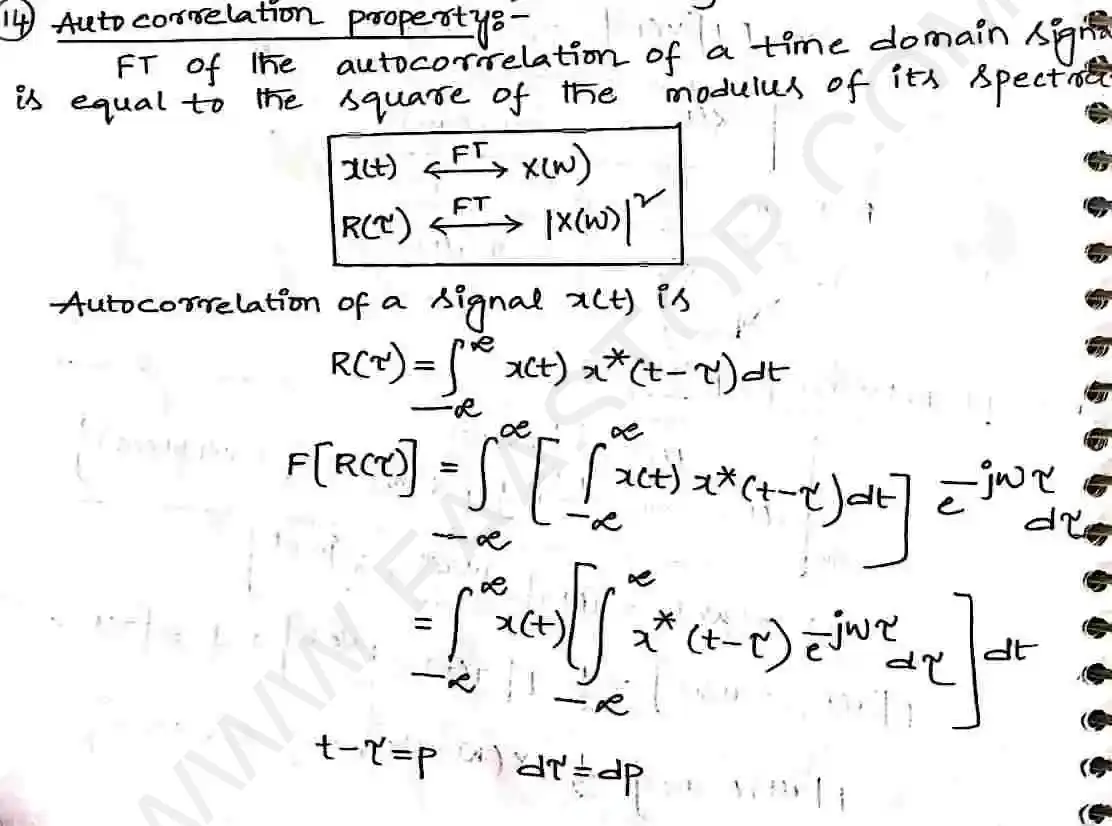 14) Autocorrelation property:-
FT of the autocorrelation of a time domain signa
is equal to the square of the modulus of its spectra
x(t) ⟷FT X(ω)
R(τ) ⟷FT |X(ω)|²
Autocorrelation of a signal x(t) is
R(τ) = ∫_{-∞}^{∞} x(t) x*(t-τ) dt
F[R(τ)] = ∫_{-∞}^{∞} [ ∫_{-∞}^{∞} x(t) x*(t-τ) dt ] e^{-jωτ} dτ
= ∫_{-∞}^{∞} x(t) [ ∫_{-∞}^{∞} x*(t-τ) e^{-jωτ} dτ ] dt
t-τ=p dτ=dp
WWW.FAASTOP.COM